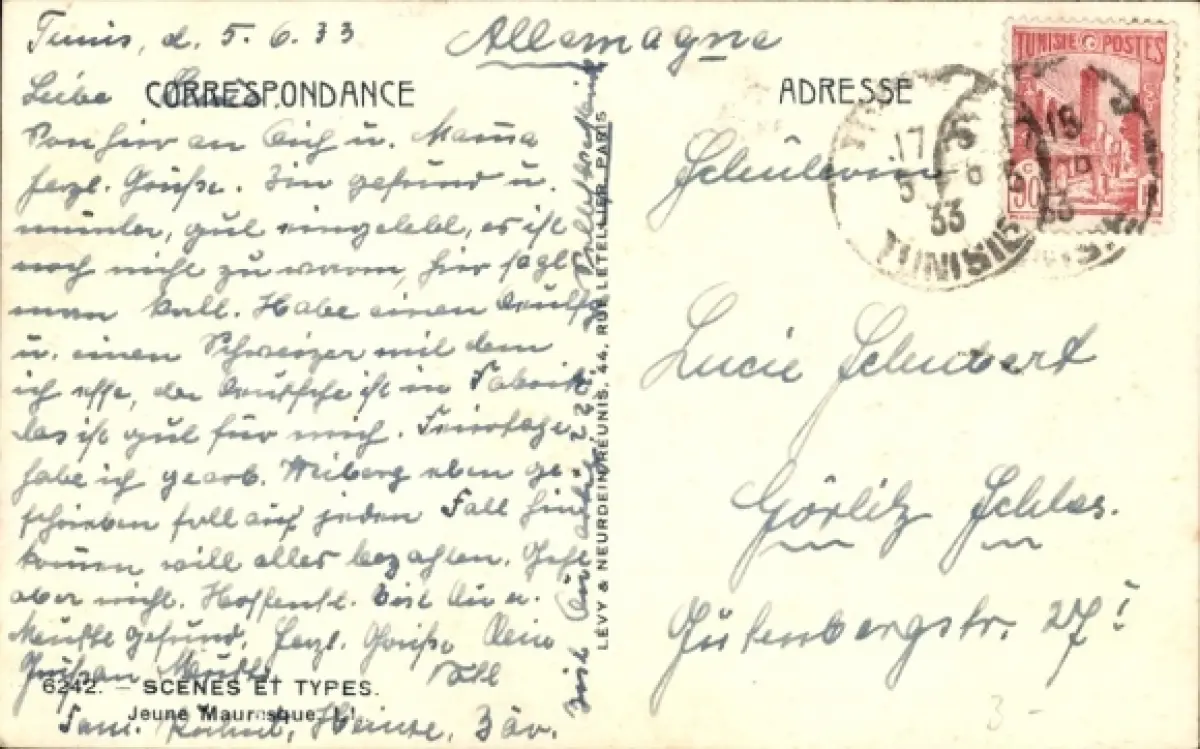 Tunis, d. 5.6.33
Allemagne
CORRESPONDANCE
ADRESSE
TUNISIE POSTES
Liebe
Von hier an Dich u. Mama
herzl. Grüße. Bin gesund u.
munter, gut eingelebt, es ist
noch nicht zu warm, hier sagt
man kalt. Habe einen
u. einen Schweizer mit dem
ich esse, der Deutsche ist in Fabrik
das ist gut für mich. Feiertage
habe ich gearb. eben ge-
schrieben soll auf jeden Fall hin
kommen will alles bezahlen. Geht
aber nicht. Hoffentl. bist Du u.
gesund. Herzl. Grüße Dein
Grüße an
6242. — SCÈNES ET TYPES.
Jeune Mauresque. LL
Fam. Heinze,
LÉVY & NEURDEIN RÉUNIS, 44, RUE LETELLIER, PARIS
Schülerin
Lucie Schubert
Görlitz Schles.
Gutenbergstr. 27 I
17
5
33
TUNISIE